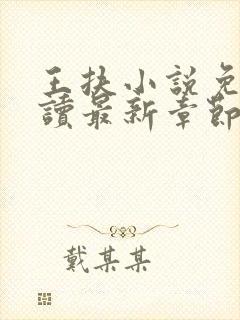 王扶小說免
讀最新章節
戴某某